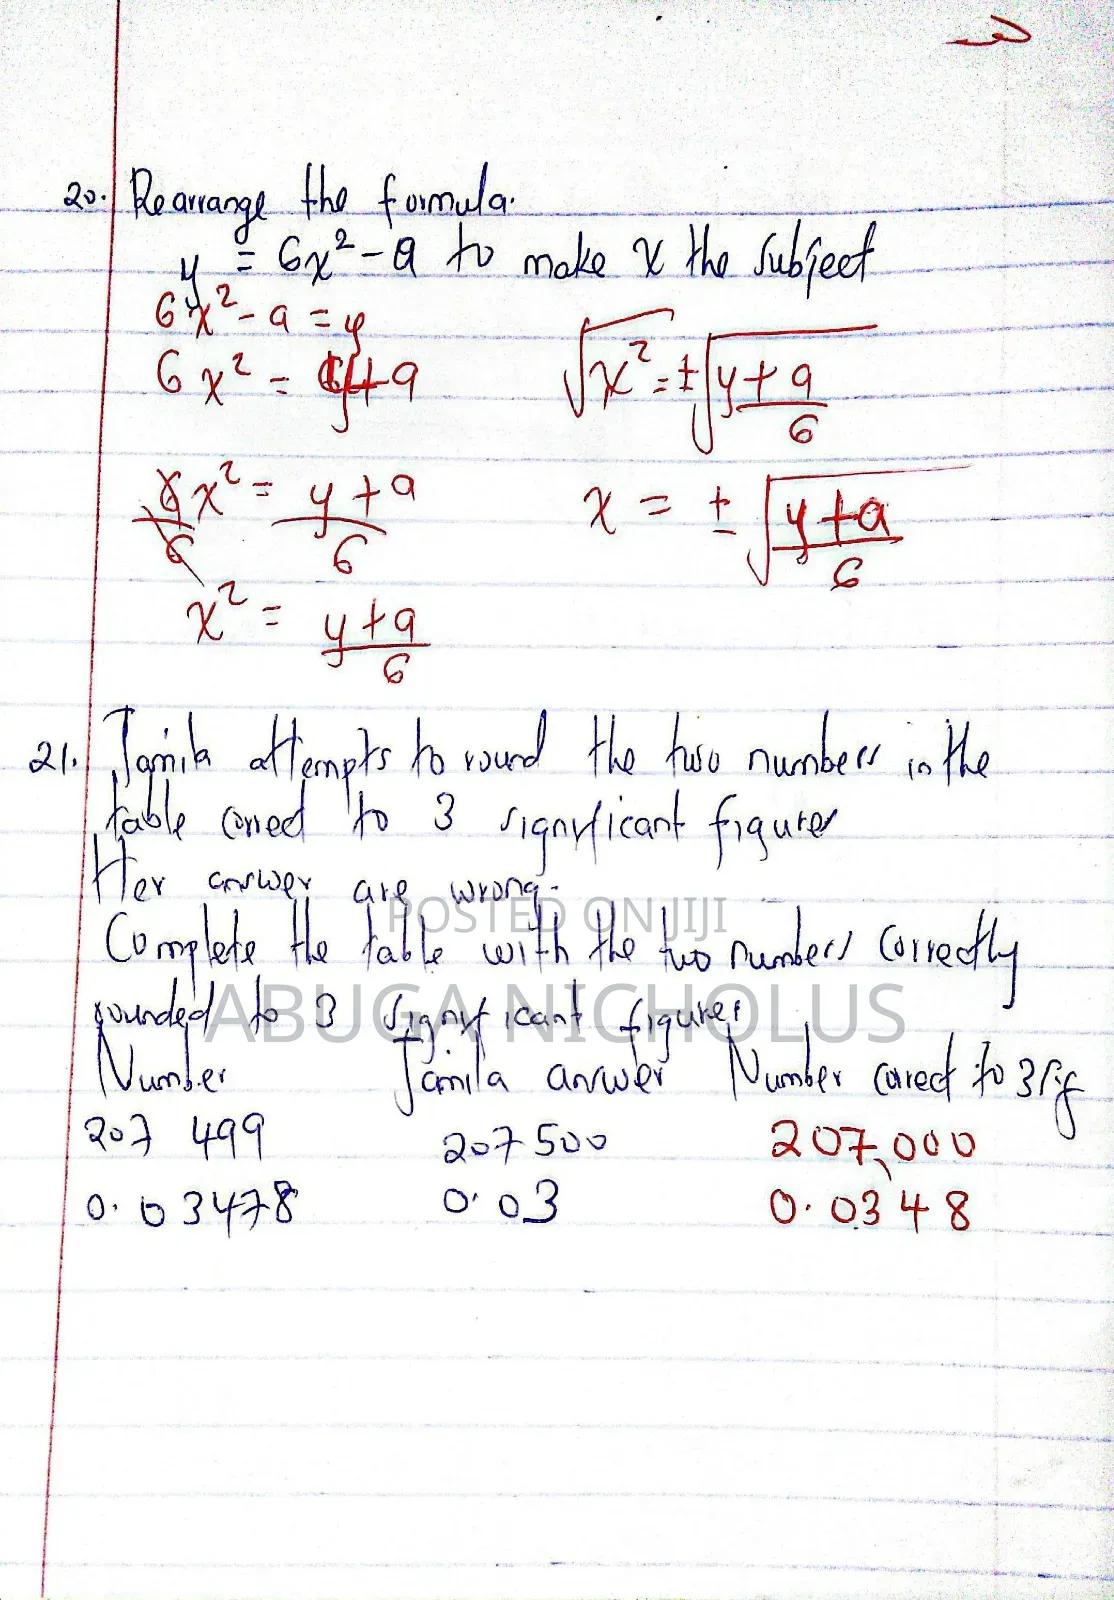 20. Rearrange the formula.
y = 6x² - a to make x the subject
6x² - a = y
6x² = y+a
6x²/6 = y+a/6
x² = y+a/6
√x² = ±√y+a/6
x = ±√y+a/6
21. Jamila attempts to round the two numbers in the
table correct to 3 significant figures
Her answer are wrong.
Complete the table with the two numbers correctly
rounded to 3 significant figures
Number Jamila answer Number correct to 3 s.f
207 499 207 500 207,000
0.03478 0.03 0.0348
POSTED ON JIJI
ABUGA NICHOLUS